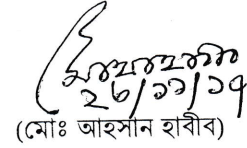 ২৮/১১/১৭
(মোঃ আহসান হাবীব)